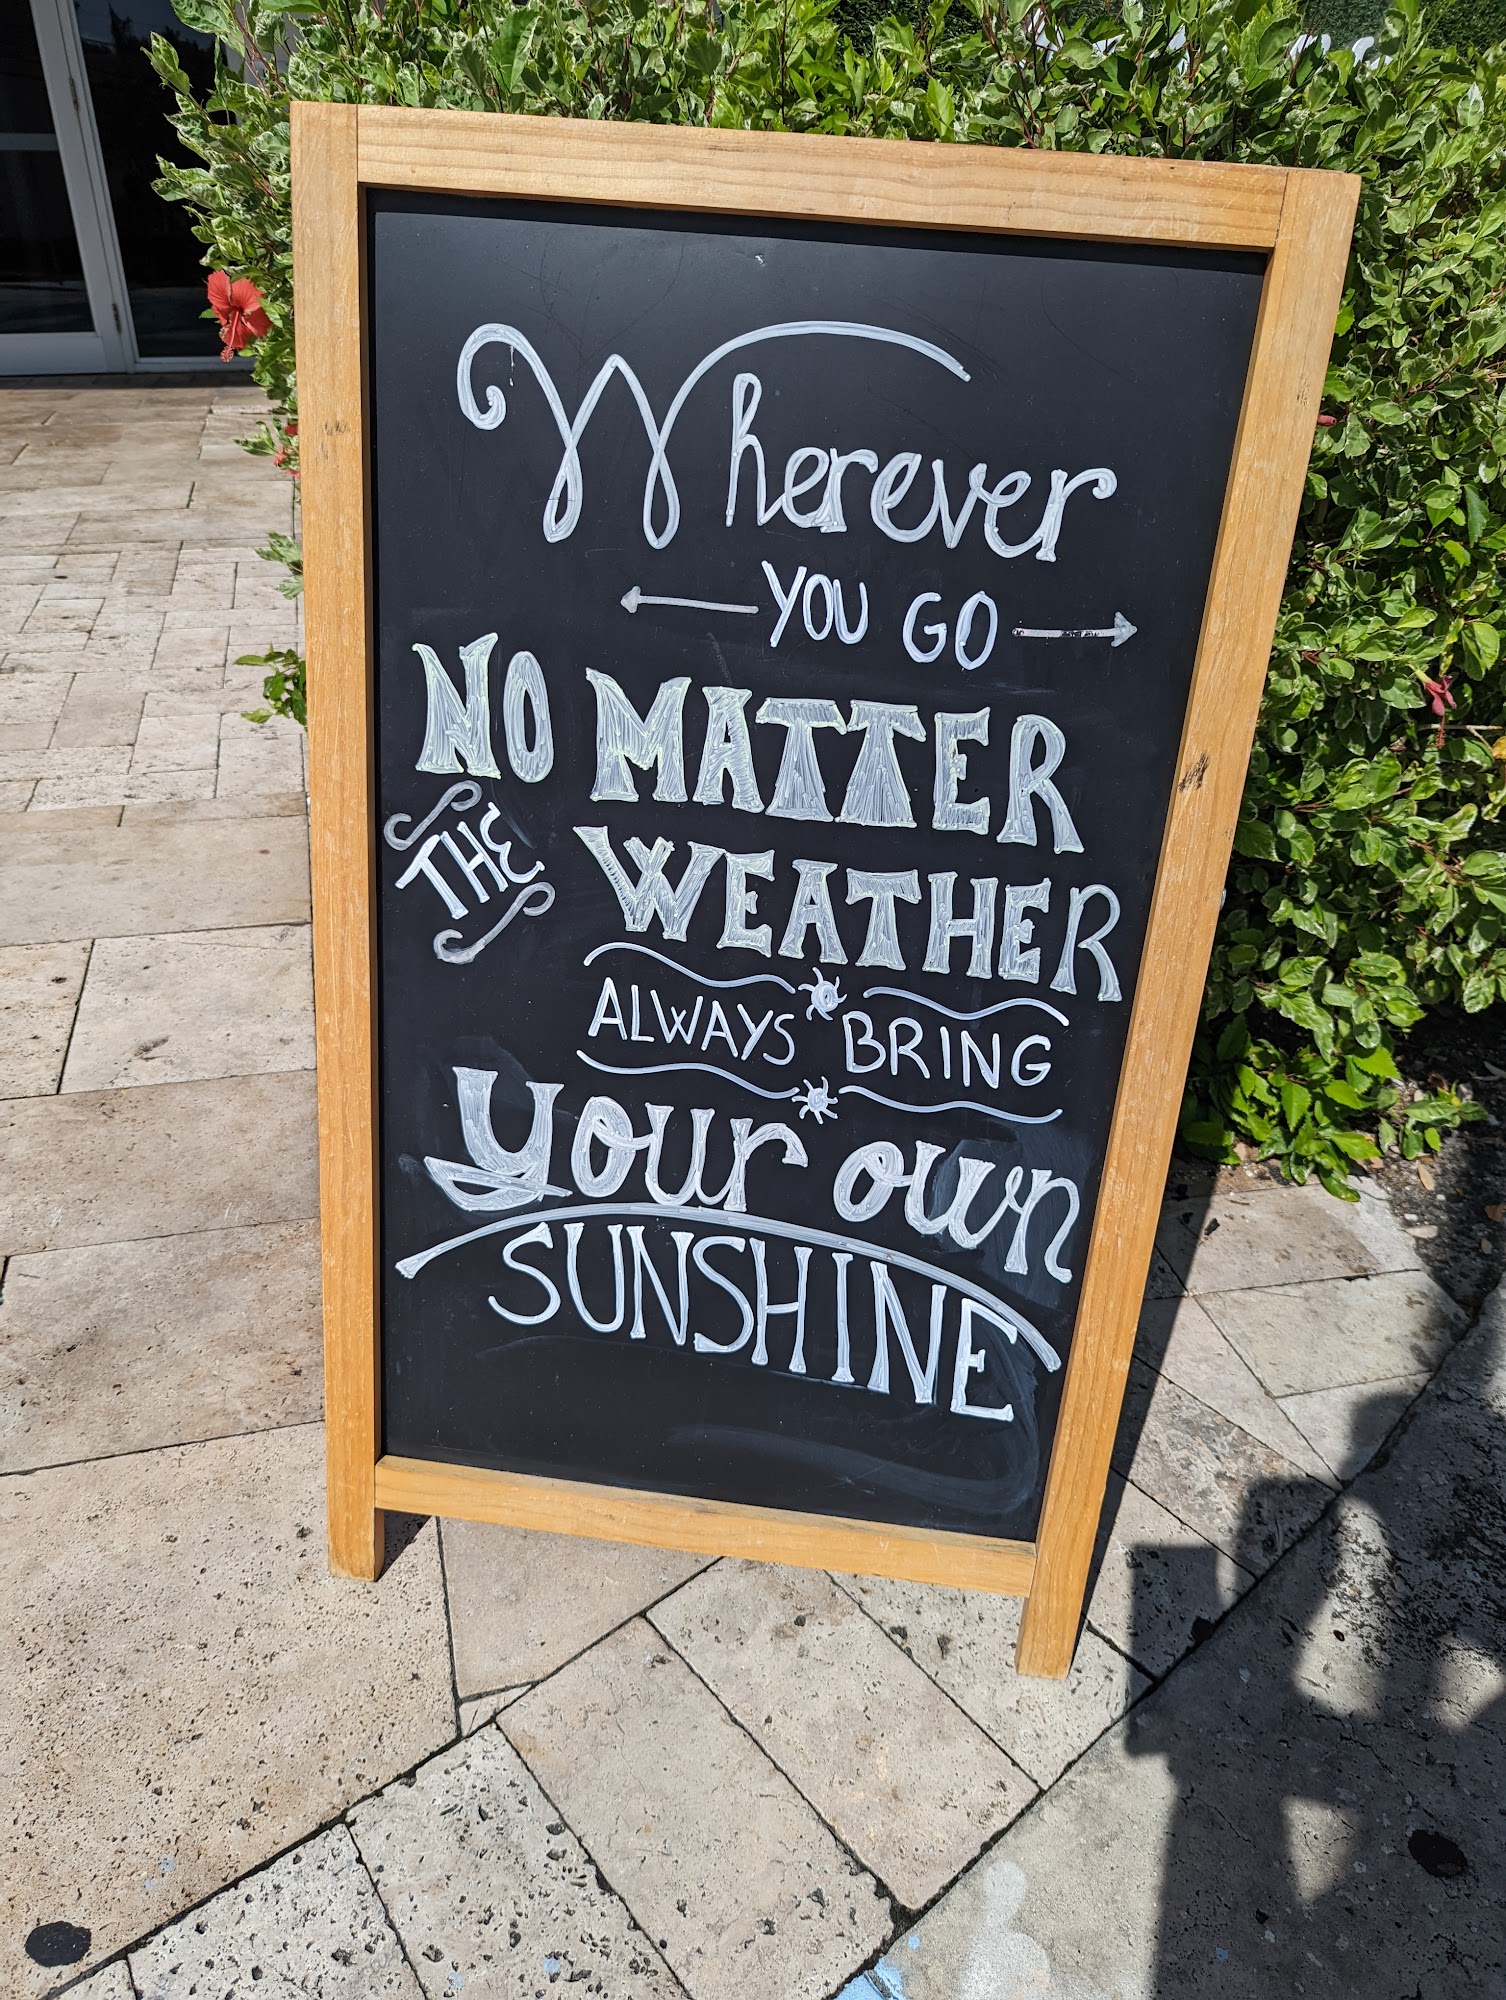 Wherever
YOU GO
NO MATTER
THE WEATHER
ALWAYS BRING
your own
SUNSHINE